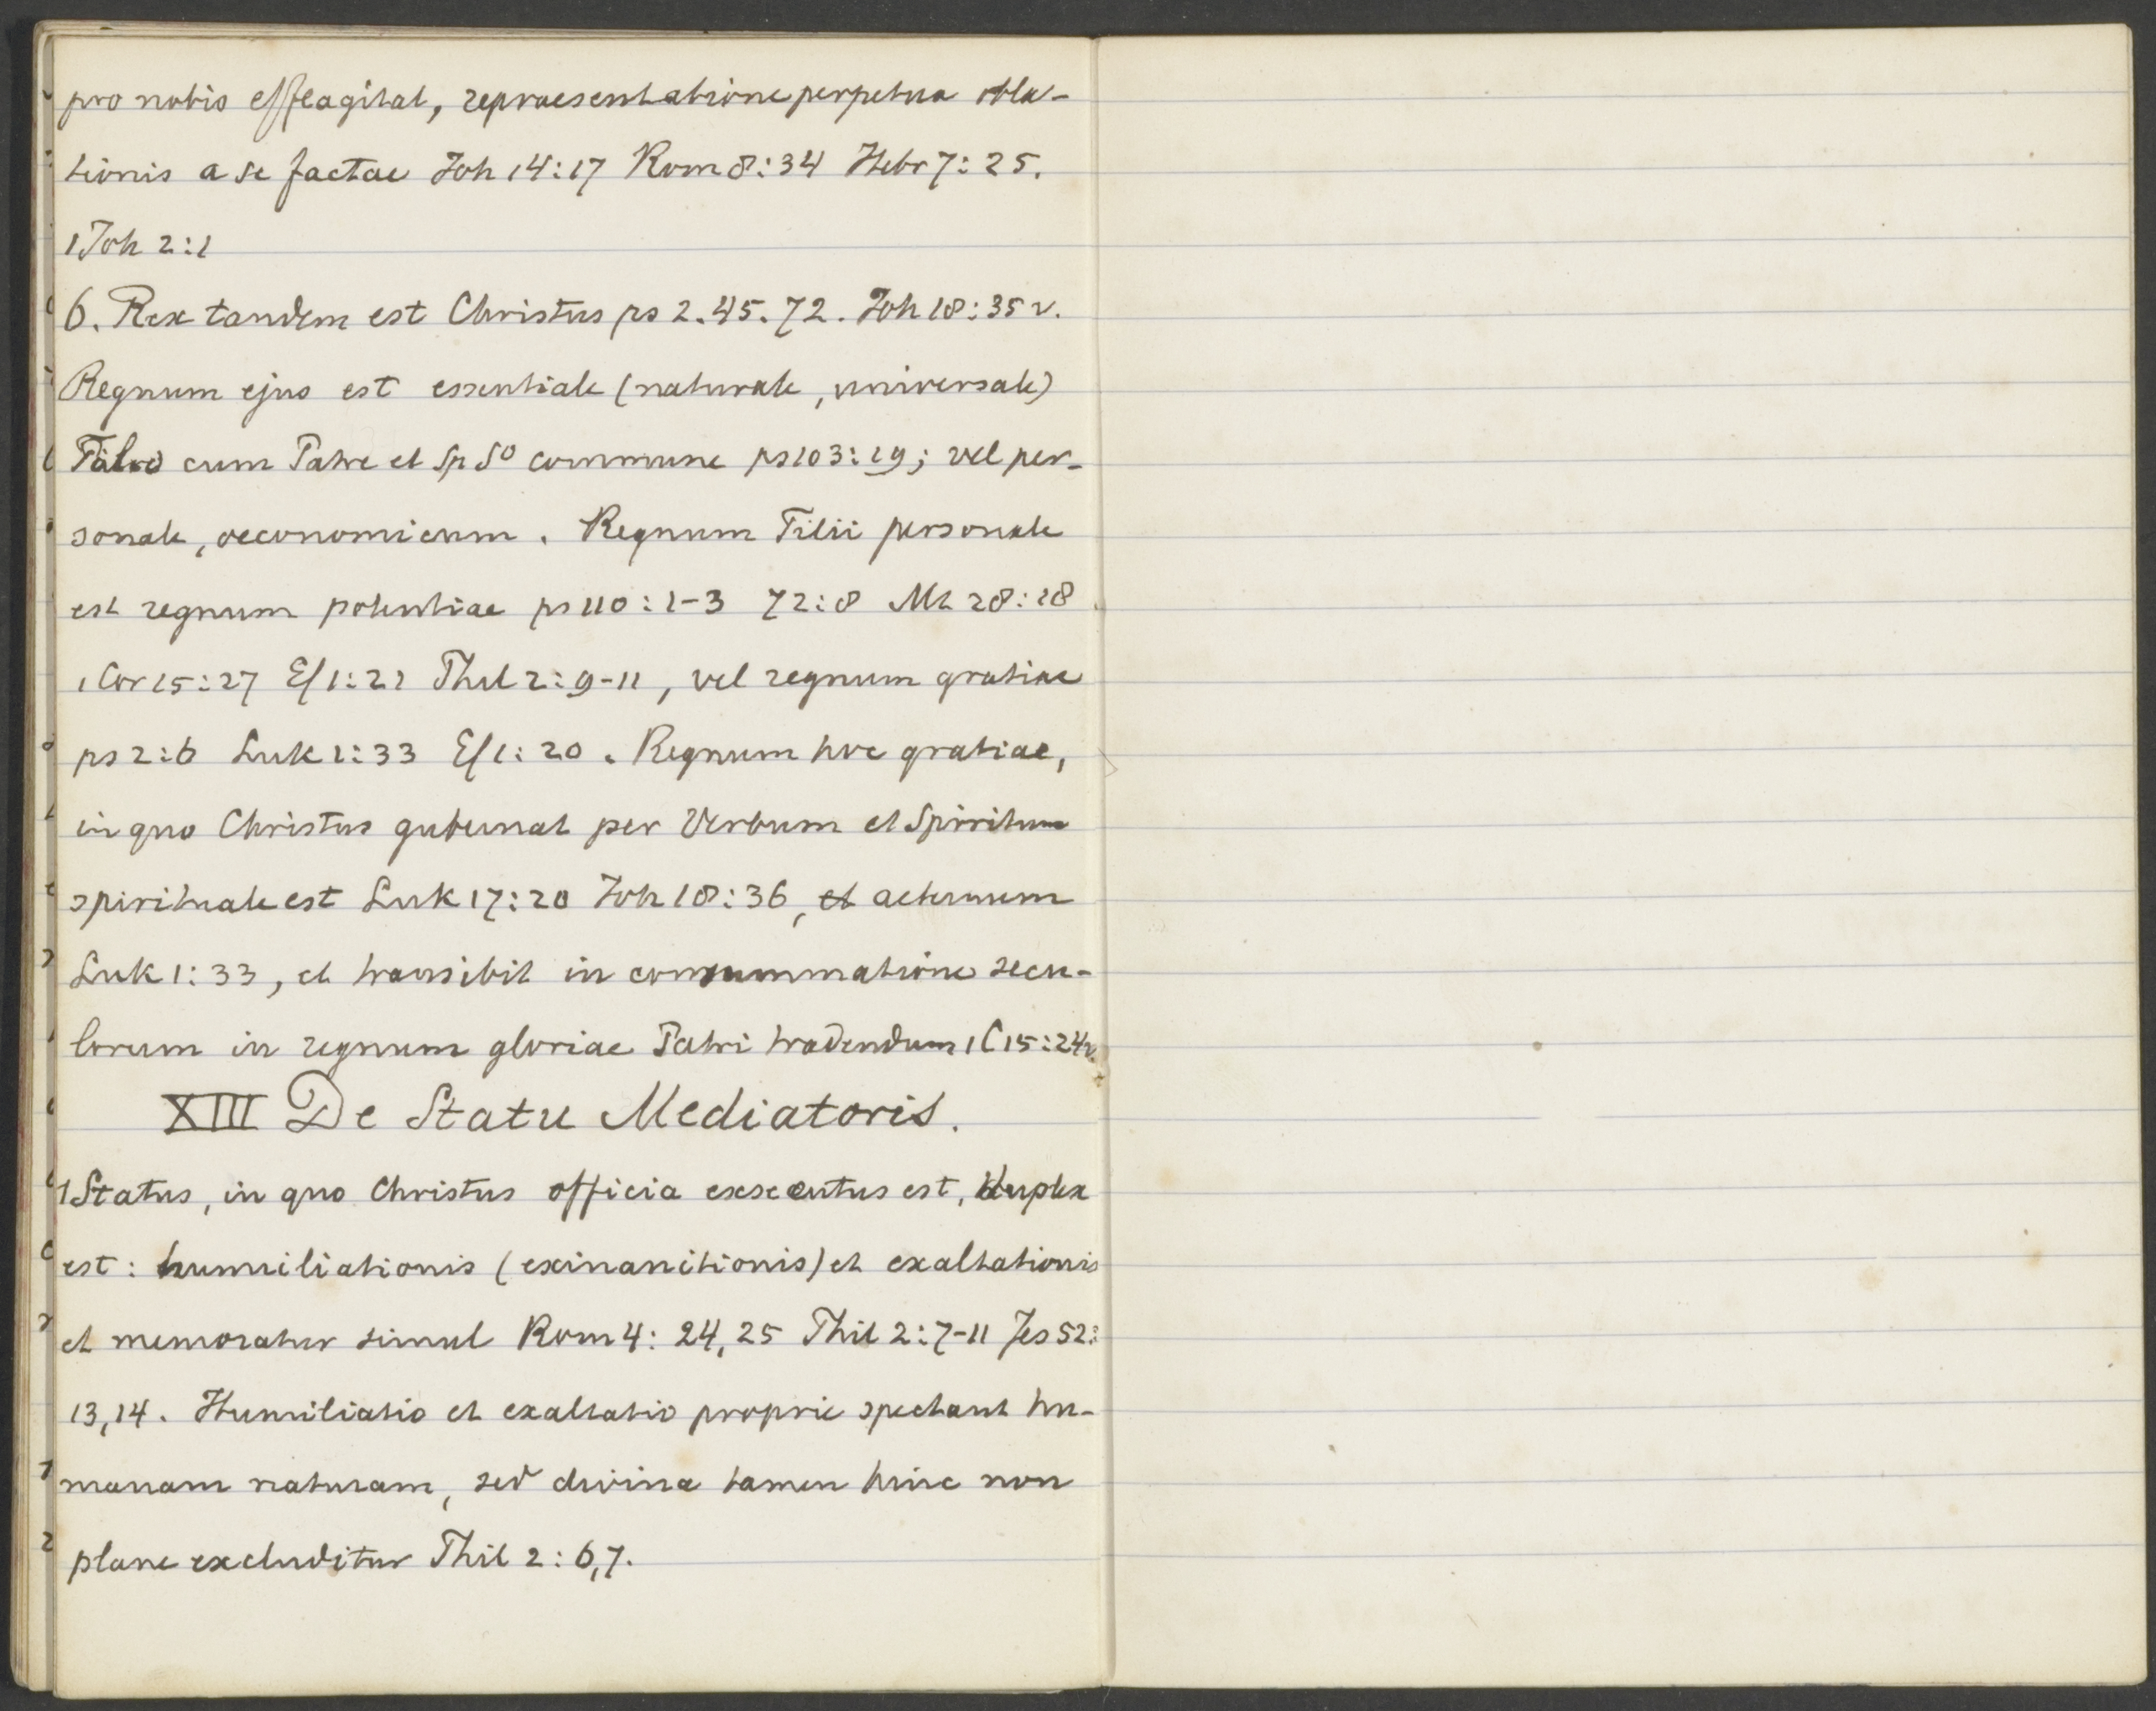 pro nobis efflagitat, repraesentatione perpetua obla-
tionis a se factae Joh 14:17 Rom 8:34 Hebr 7:25.
1 Joh 2:1
6. Rex tandem est Christus ps 2.45.72. Joh 18:35 v.
Regnum ejus est essentiale (naturale, universale)
cum Patre et Sp So commune ps 103:19; vel per-
sonale, oeconomicum. Regnum Filii personale
est regnum potentiae ps 110:1-3 72:8 Mt 28:18
1 Cor 15:27 Ef 1:21 Phil 2:9-11, vel regnum gratiae
ps 2:6 Luk 1:33 Ef 1:20. Regnum hoc gratiae,
in quo Christus gubernat per Verbum et Spiritum
spirituale est Luk 17:20 Joh 18:36, et aeternum
Luk 1:33, et transibit in consummatione secu-
lorum in regnum gloriae Patri tradendum 1 C 15:24v.
XIII De Statu Mediatoris.
1 Status, in quo Christus officia exsecutus est, duplex
est: humiliationis (exinanitionis) et exaltationis
et memoratur simul Rom 4:24,25 Phil 2:7-11 Jes 52:
13,14. Humiliatio et exaltatio proprie spectant hu-
manam naturam, sed divina tamen hinc non
plane excluditur Phil 2:6,7.